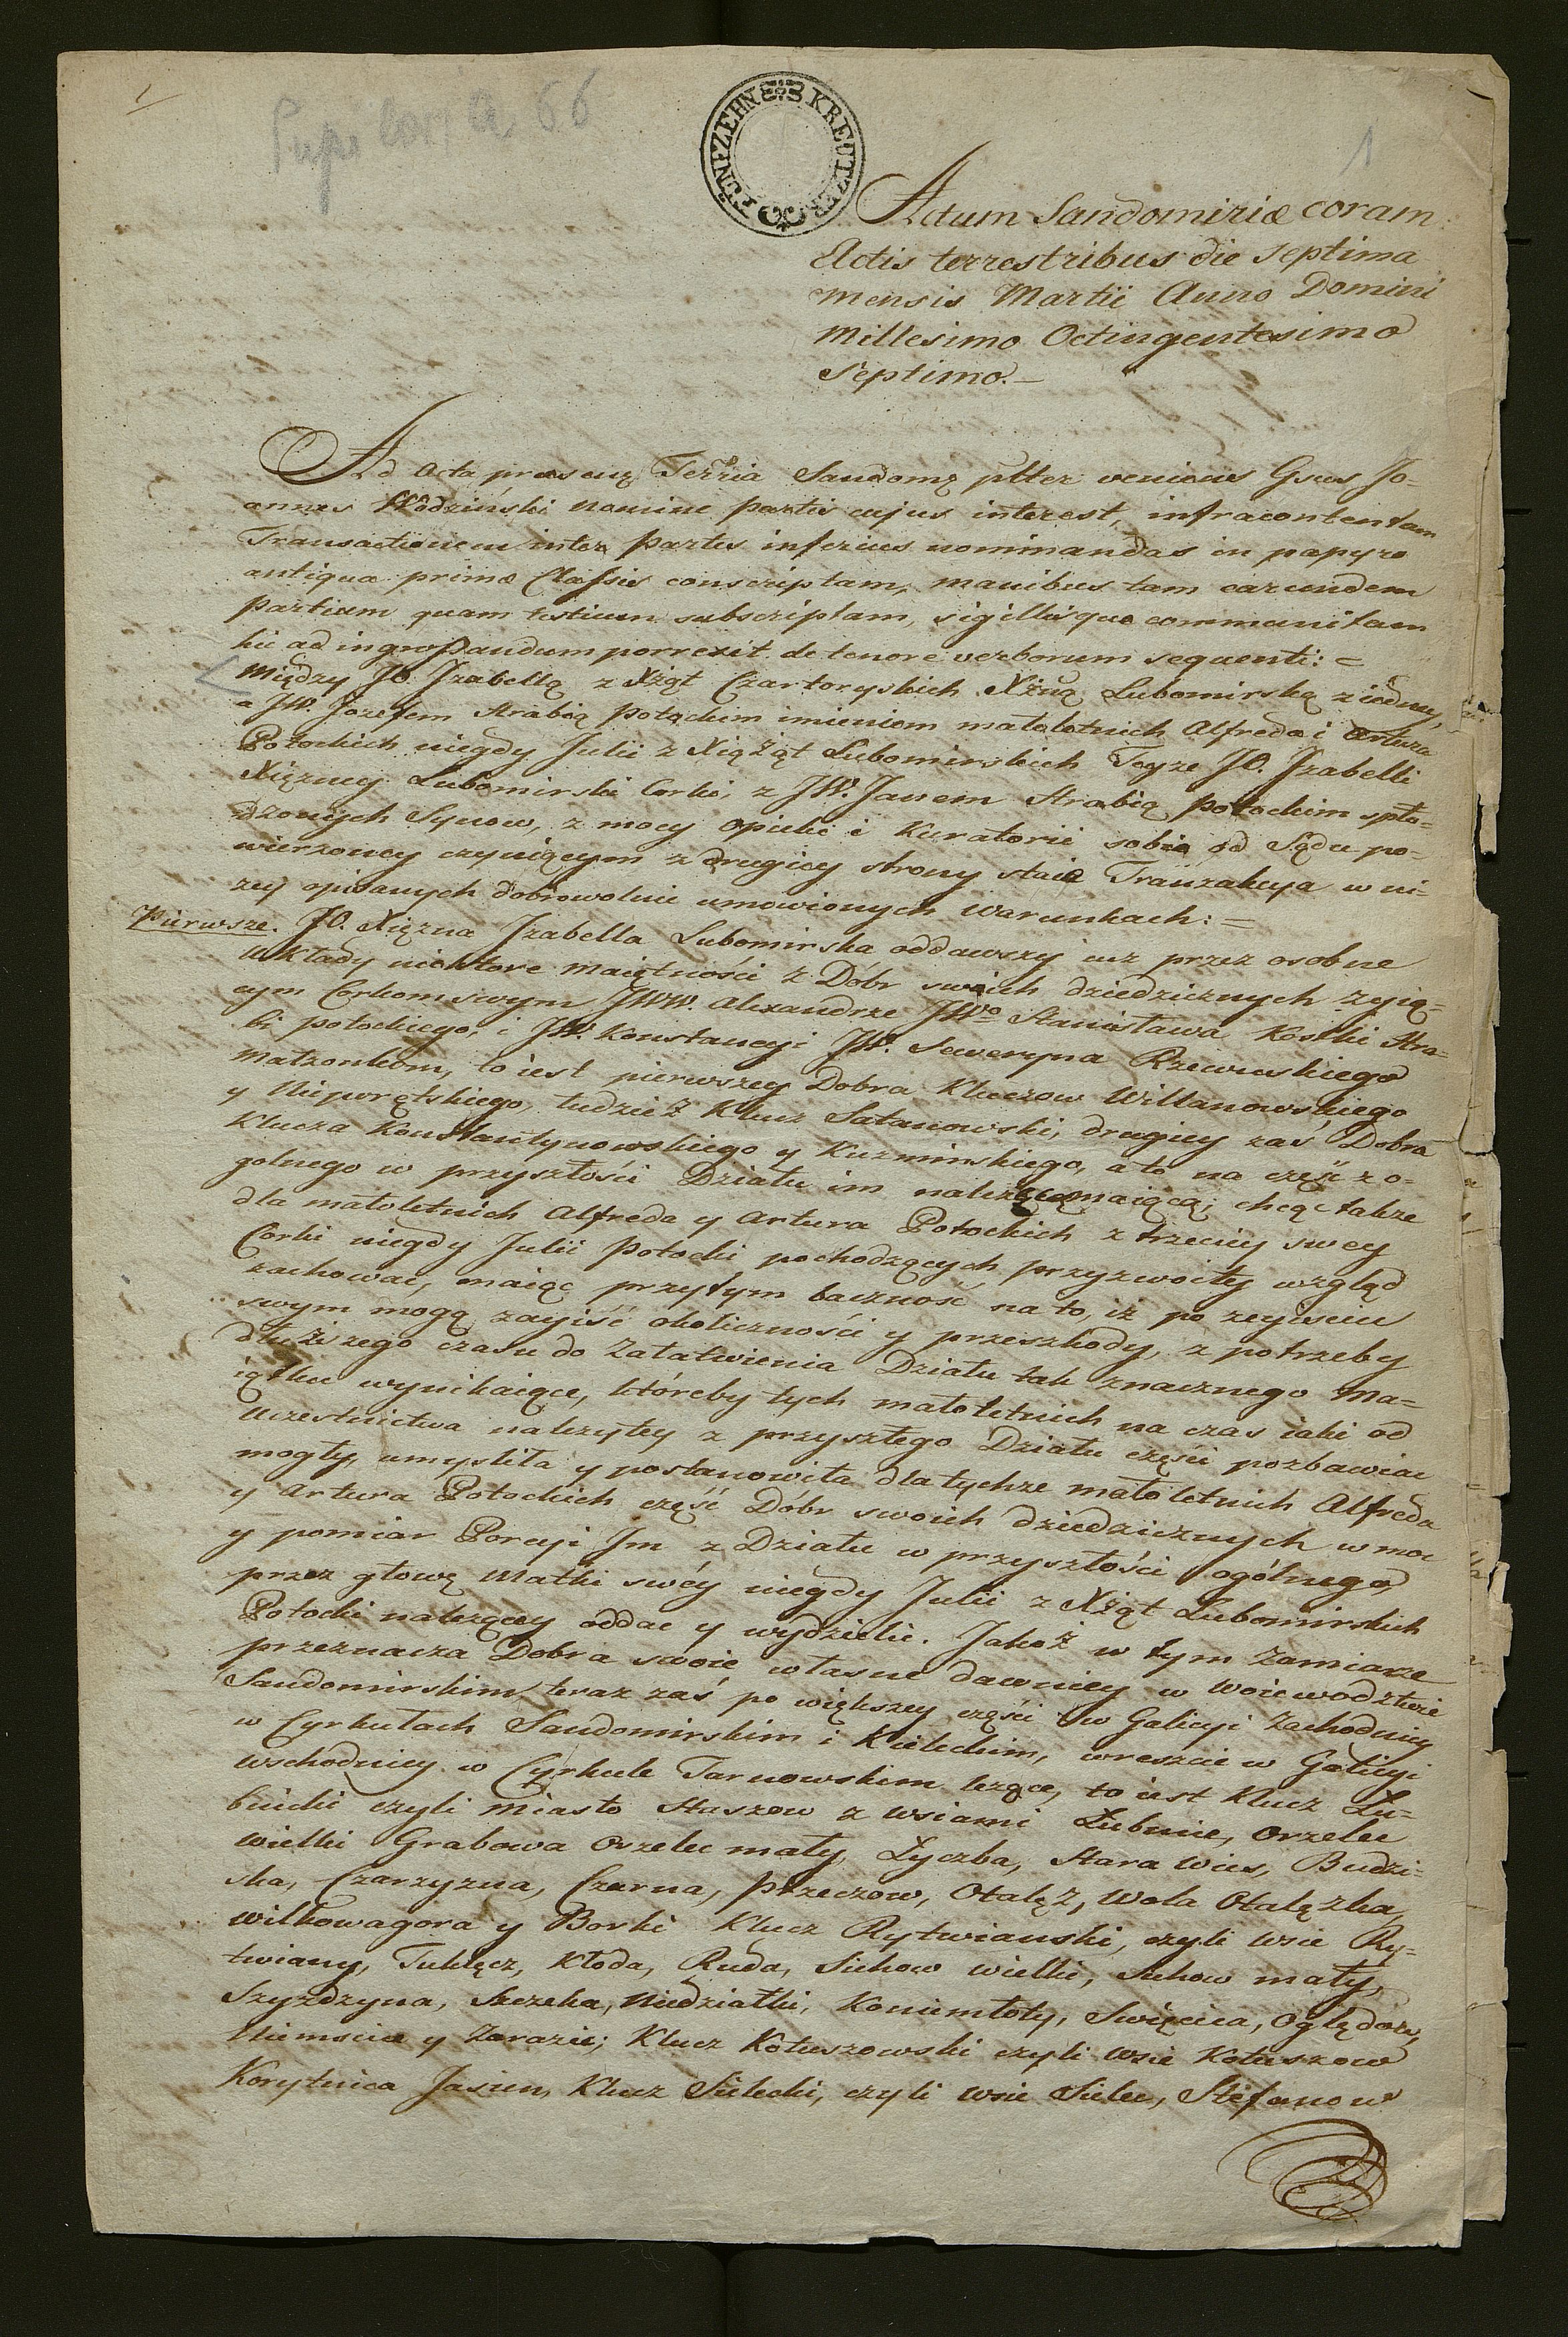 1
66
1
FÜNFZEHN KREUTZER
Actum Sandomiriæ coram
Actis terrestribus die septima
mensis Martii Anno Domini
Millesimo Octingentesimo
Septimo.—
Ad Acta præsenę Terria Sandomę pltter veniens Gsus Jo-
annes Włodziński nomine partis cujus interest, infracontentam
Transactionem inter Partes inferius nominandas in papyro
antiqua primæ Classis conscriptam, manibus tam earundem
Partium quam testium subscriptam, sigillisque communitam
hic ad ingrossandum porrexit de tenore verborum sequenti: =
Między JO. Izabellą z Xżąt Czartoryskich Xżną Lubomirską z iedney,
a JW. Jozefem Hrabią Potockim imieniem małoletnich Alfreda i Artura
Potockich niegdy Julii z Xiążąt Lubomirskich Teyże JO. Izabelli
Xiężney Lubomirski Corki, z JW. Janem Hrabią Potockim spło-
dzonych Synow, z mocy opieki i Kuratorii sobie od Sądu po-
wierzoney czyniącym z drugiey strony staie Tranzakcya w ni-
żey opisanych dobrowolnie umowionych warunkach: =
Pierwsze. JO. Xiężna Izabella Lubomirska oddawszy iuż przez osobne
układy niektore maiętności z Dóbr swoich dziedzicznych żyią-
cym Corkom swym JWW. Alexandrze JWo Stanisława Kostki Hra-
bi Potockiego, i JW. Konstancyi JW. Seweryna Rzewuskiego
Małżonkom, to iest pierwszey Dobra Kluczow Willanowskiego
y Nieporętskiego, tudzież Klucz Satanowski, drugiey zaś Dobra
Klucza Konstantynowskiego y Kuzminskiego, a to na część z o-
golnego w przyszłości Działu im należeć maiącą; chcąc także
dla małoletnich Alfreda y Artura Potockich z trzeciey swey
Corki niegdy Julii Potocki pochodzących przyzwoity wzgląd
zachować, maiąc przytym baczność na to, iż po zeyściu
swym mogą zayiść okoliczności y przeszkody, z potrzeby
dłuższego czasu do załatwienia Działu tak znacznego Ma-
iątku wynikaiące, któreby tych małoletnich na czas iaki od
uczestnictwa należytey z przyszłego Działu części pozbawiać
mogły, umysliła y postanowiła dla tychże małoletnich Alfreda
y Artura Potockich część Dóbr swoich dziedzicznych w moc
y pomiar Porcyi Im z Działu w przyszłości ogólnego
przez głowę Matki swéy niegdy Julii z Xżąt Lubomirskich
Potocki należącey oddać y wydzielić. Jakoż w tym zamiarze
przeznacza Dobra swoie własne dawniey w Woiewodztwie
Sandomirskim, teraz zaś po większey części w Galicyi Zachodniey
w Cyrkułach Sandomirskim i Kieleckim, wreszcie w Galicyi
wschodniey w Cyrkule Tarnowskim leżące, to iest Klucz Łu-
bnicki czyli Miasto Staszow z wsiami Łubnie, Orzelec
wielki Grabowa Orzelec mały, Łyczba, Stara wies, Budzi-
ska, Czarzyzna, Czarna, Przeczow, Otalęż, Wola Otalęzka,
wilkowagora y Borki Klucz Rytwianski, czyli wsie Ry-
twiany, Tuklęcz, Kłoda, Ruda, Sichow wielki, Sichow mały,
Szyzdzyna, Szczeka, Niedziałki, Koniemłoty, Swięcica, Oględow,
Niemscice y Zarazie; Klucz Kotuszowski czyli wsie Kotuszow
Korytnica Jasien, Klucz Sielecki, czyli wsie Sielec, Stefanow